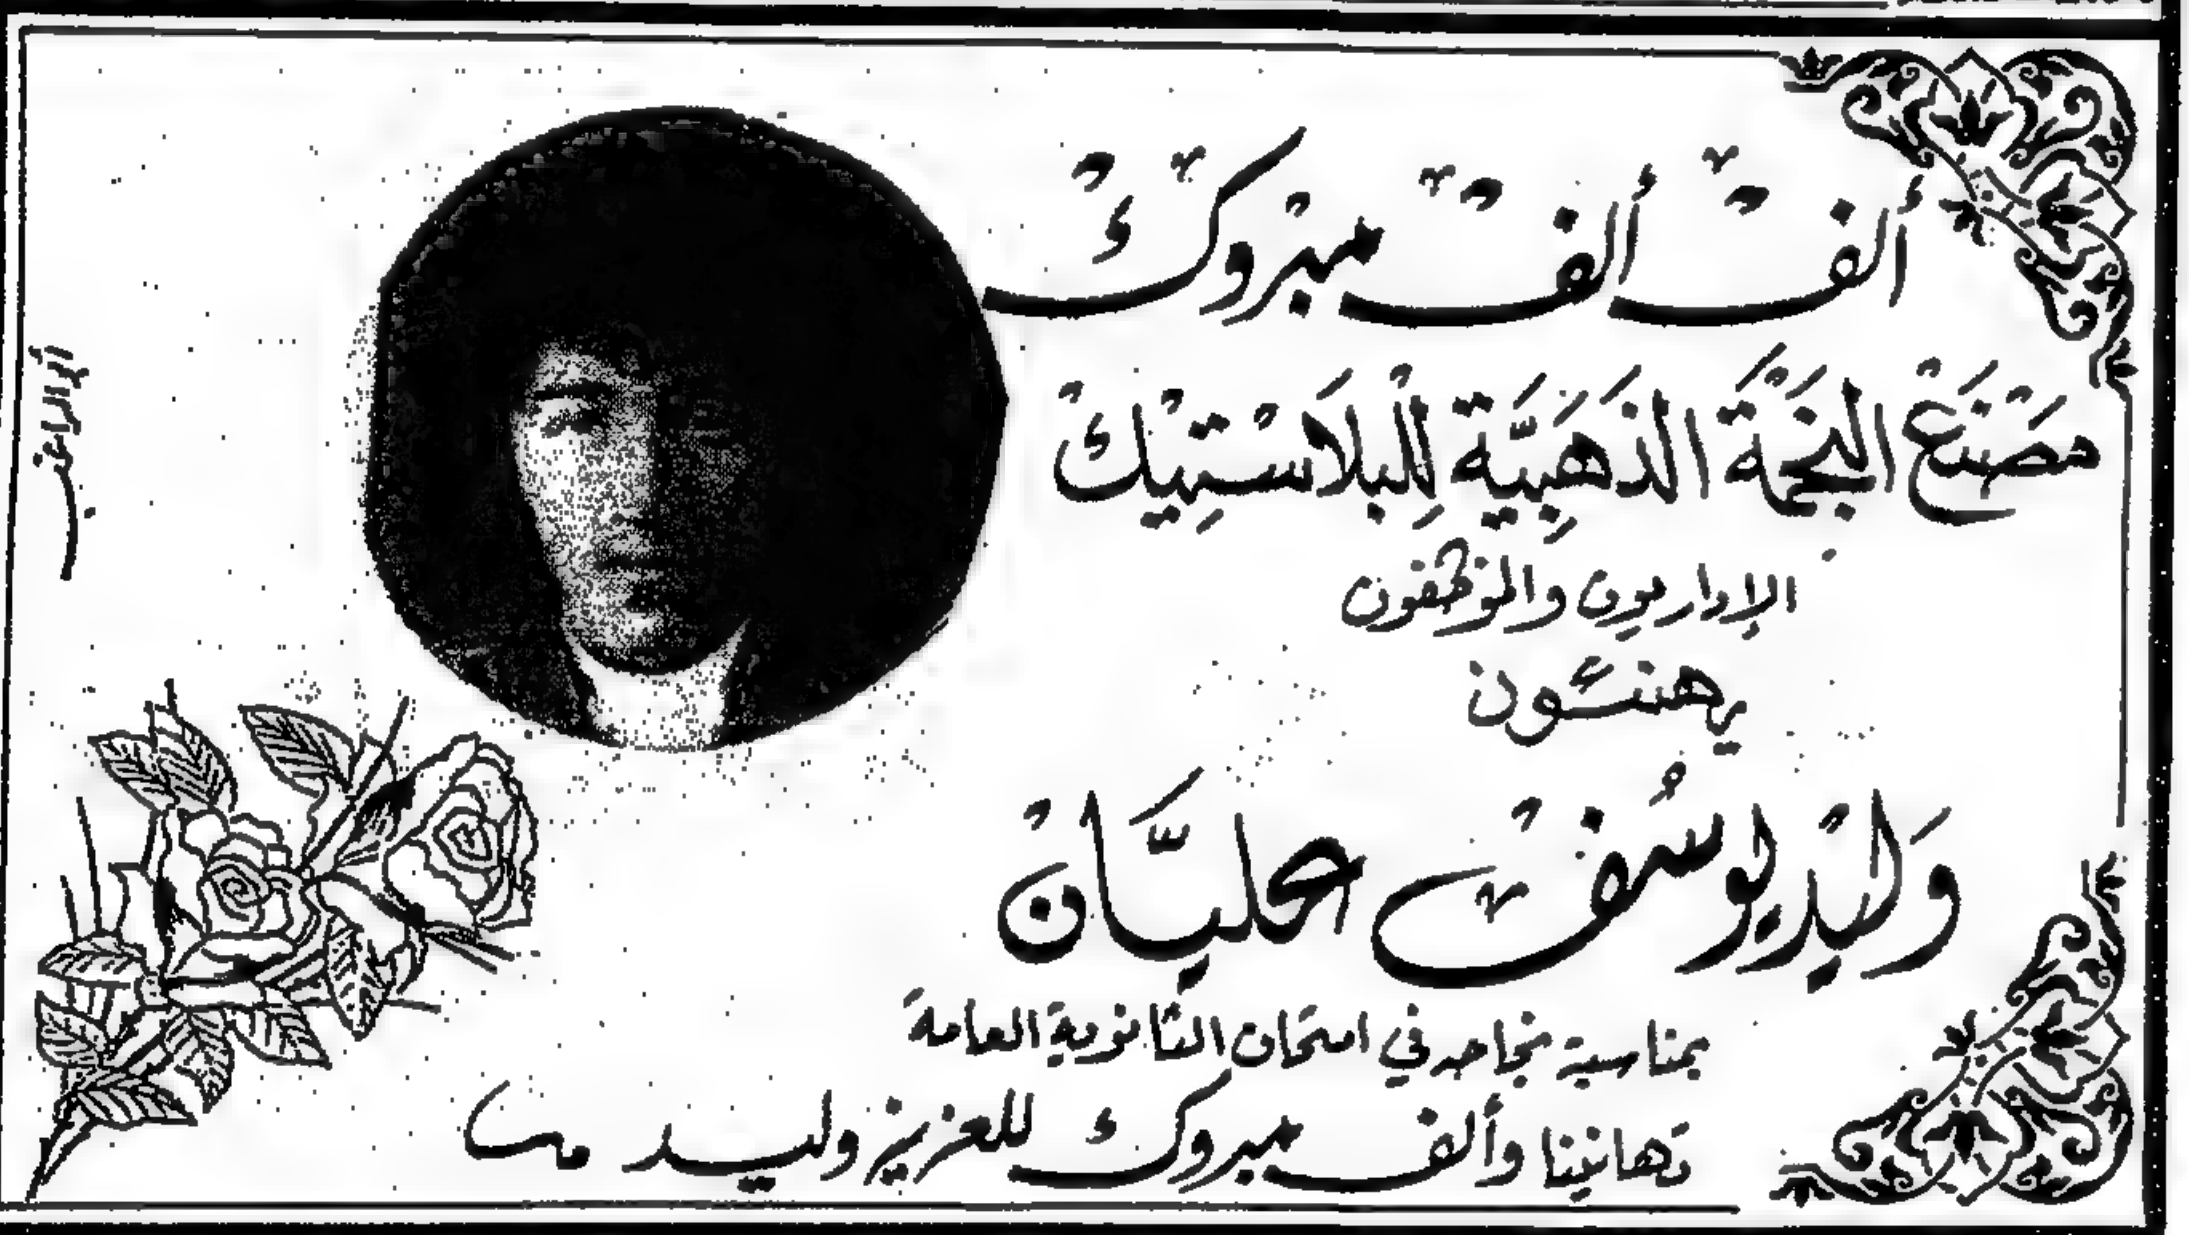 ألف ألف مبروك
مَصْنَع النَجْمَة الذَهَبِيَّة لِلْبلاَسْتِيْك
الإداريون والموظفون
يهنئون
وَليْد يوسُف عليَّان
بمناسبة نجاحه في امتحان الثانوية العامة
تهانينا وألف مبروك للعزيز وليد